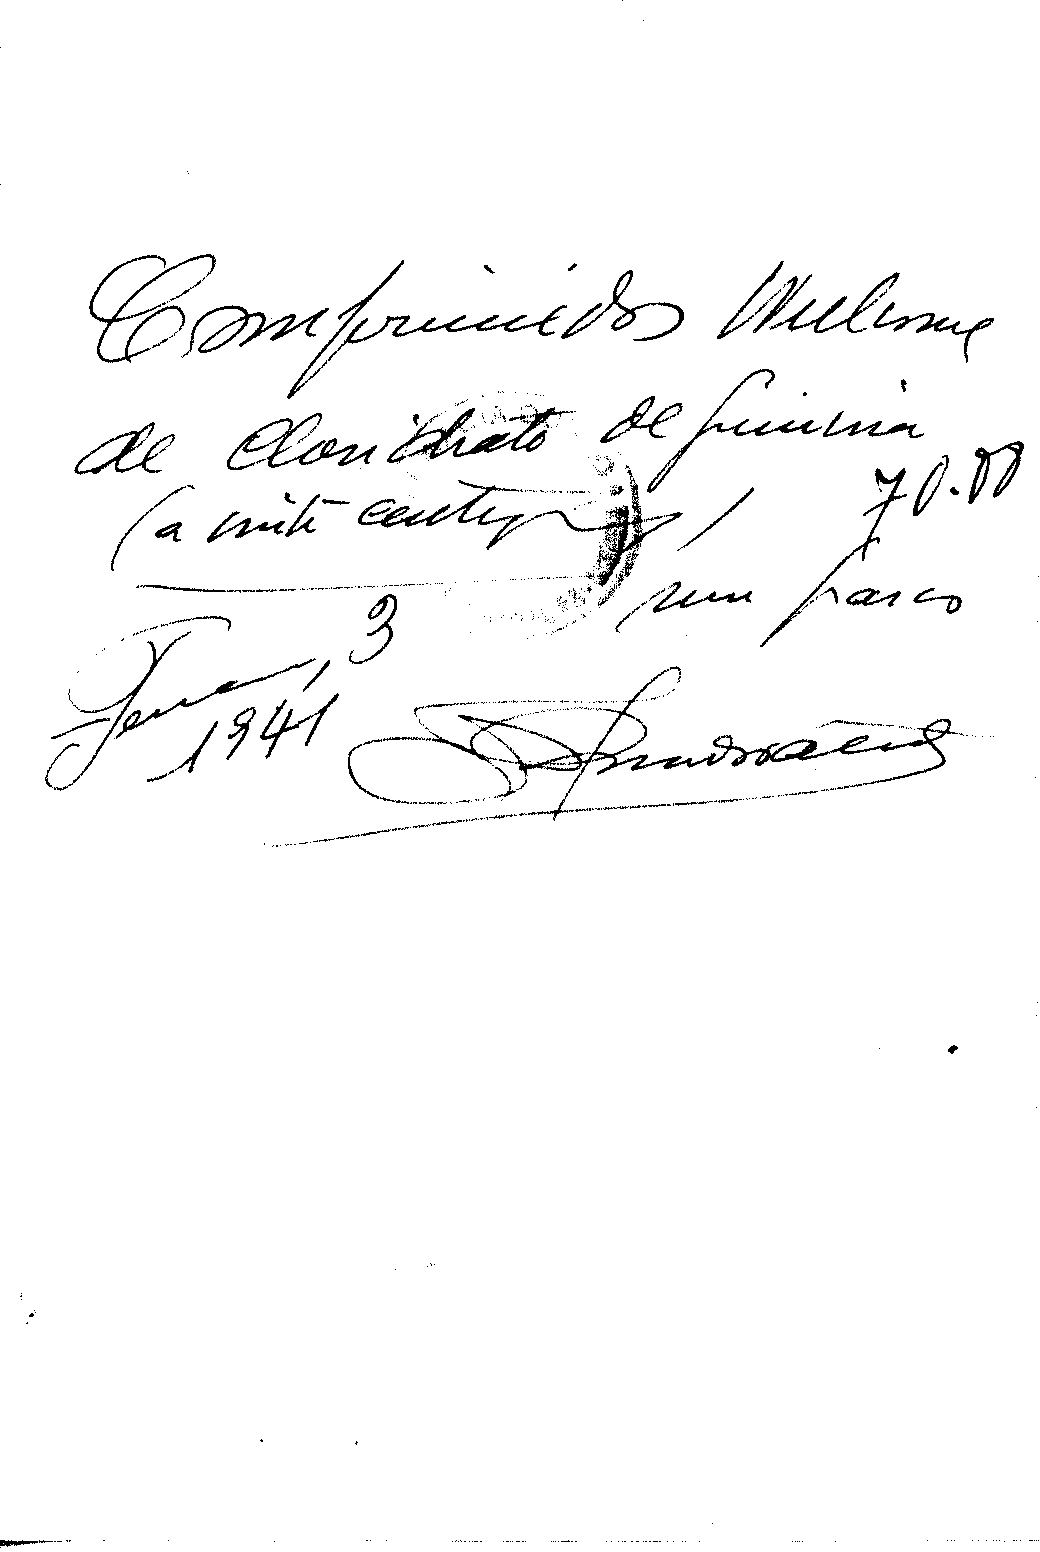 Comprimidos Wellcome
de Cloridrato de quinina
(a vinte centigrs)
70.00
um frasco
3
1941